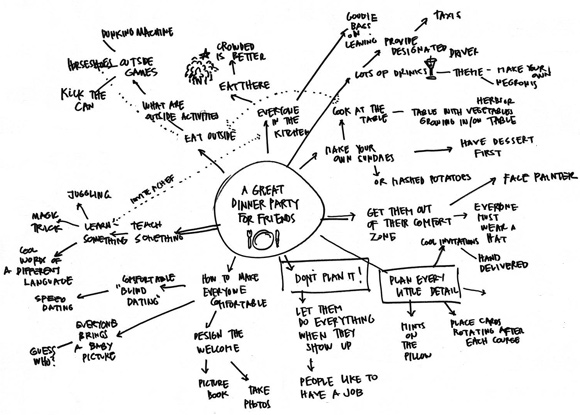 A GREAT
DINNER PARTY
FOR FRIENDS
GOODIE
BAGS
ON
LEAVING
TAXIS
PROVIDE
DESIGNATED DRIVER
LOTS OF DRINKS
THEME - MAKE YOUR
OWN
NEGRONIS
COOK AT THE
TABLE
HERB OR
TABLE WITH VEGETABLES
GROWING IN/ON TABLE
MAKE YOUR
OWN SUNDAES
HAVE DESSERT
FIRST
OR MASHED POTATOES
GET THEM OUT
OF THEIR COMFORT
ZONE
FACE PAINTER
EVERYONE
MUST
WEAR A
HAT
PLAN EVERY
LITTLE DETAIL
COOL INVITATIONS
HAND
DELIVERED
PLACE CARDS
ROTATING AFTER
EACH COURSE
MINTS
ON
THE
PILLOW
DON'T PLAN IT!
LET THEM
DO EVERYTHING
WHEN THEY
SHOW UP
PEOPLE LIKE TO
HAVE A JOB
HOW TO MAKE
EVERYONE
COMFORTABLE
DESIGN THE
WELCOME
PICTURE
BOOK
TAKE
PHOTOS
COMFORTABLE
"BLIND
DATING"
SPEED
DATING
EVERYONE
BRINGS
A BABY
PICTURE
GUESS
WHO?
TEACH
SOMETHING
LEARN
SOMETHING
JUGGLING
MAGIC
TRICK
COOL
WORK OF
A DIFFERENT
LANGUAGE
INVITE A CHEF
EAT OUTSIDE
WHAT ARE
OUTSIDE ACTIVITIES
OUTSIDE
GAMES
DUNKING MACHINE
HORSESHOES
KICK THE
CAN
EVERYONE
IN THE
KITCHEN
EAT THERE
CROWDED
IS BETTER